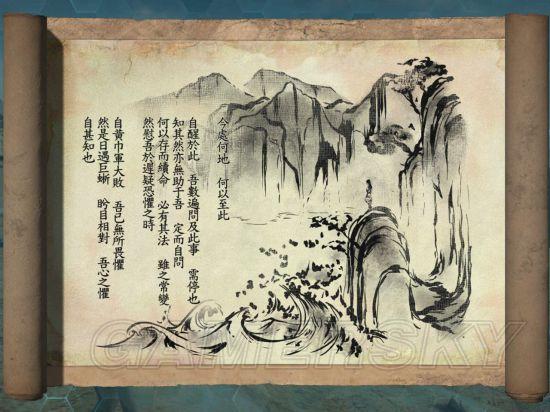 今處何地　何以至此
自醒於此　吾數遍問及此事　需停也
知其然亦無助于吾　定而自問
何以存而續命　必有其法　雖之常變
然慰吾於遲疑恐懼之時
自黃巾軍大敗　吾已無所畏懼
然是日遇巨蜥　眄目相對　吾心之懼
自甚知也
GAMERSKY